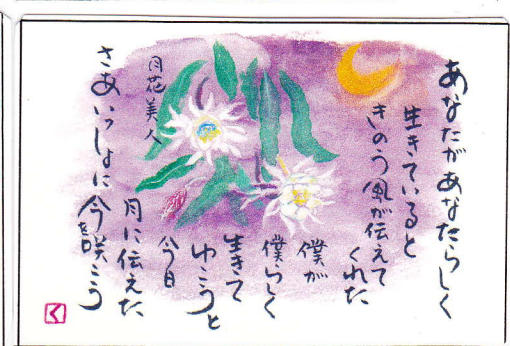 あなたがあなたらしく
生きていると
きのう風が伝えて
くれた
僕が
僕らしく
生きて
ゆこうと
今日
月に伝えた
さあいっしょに今を咲こう
月花美人
く